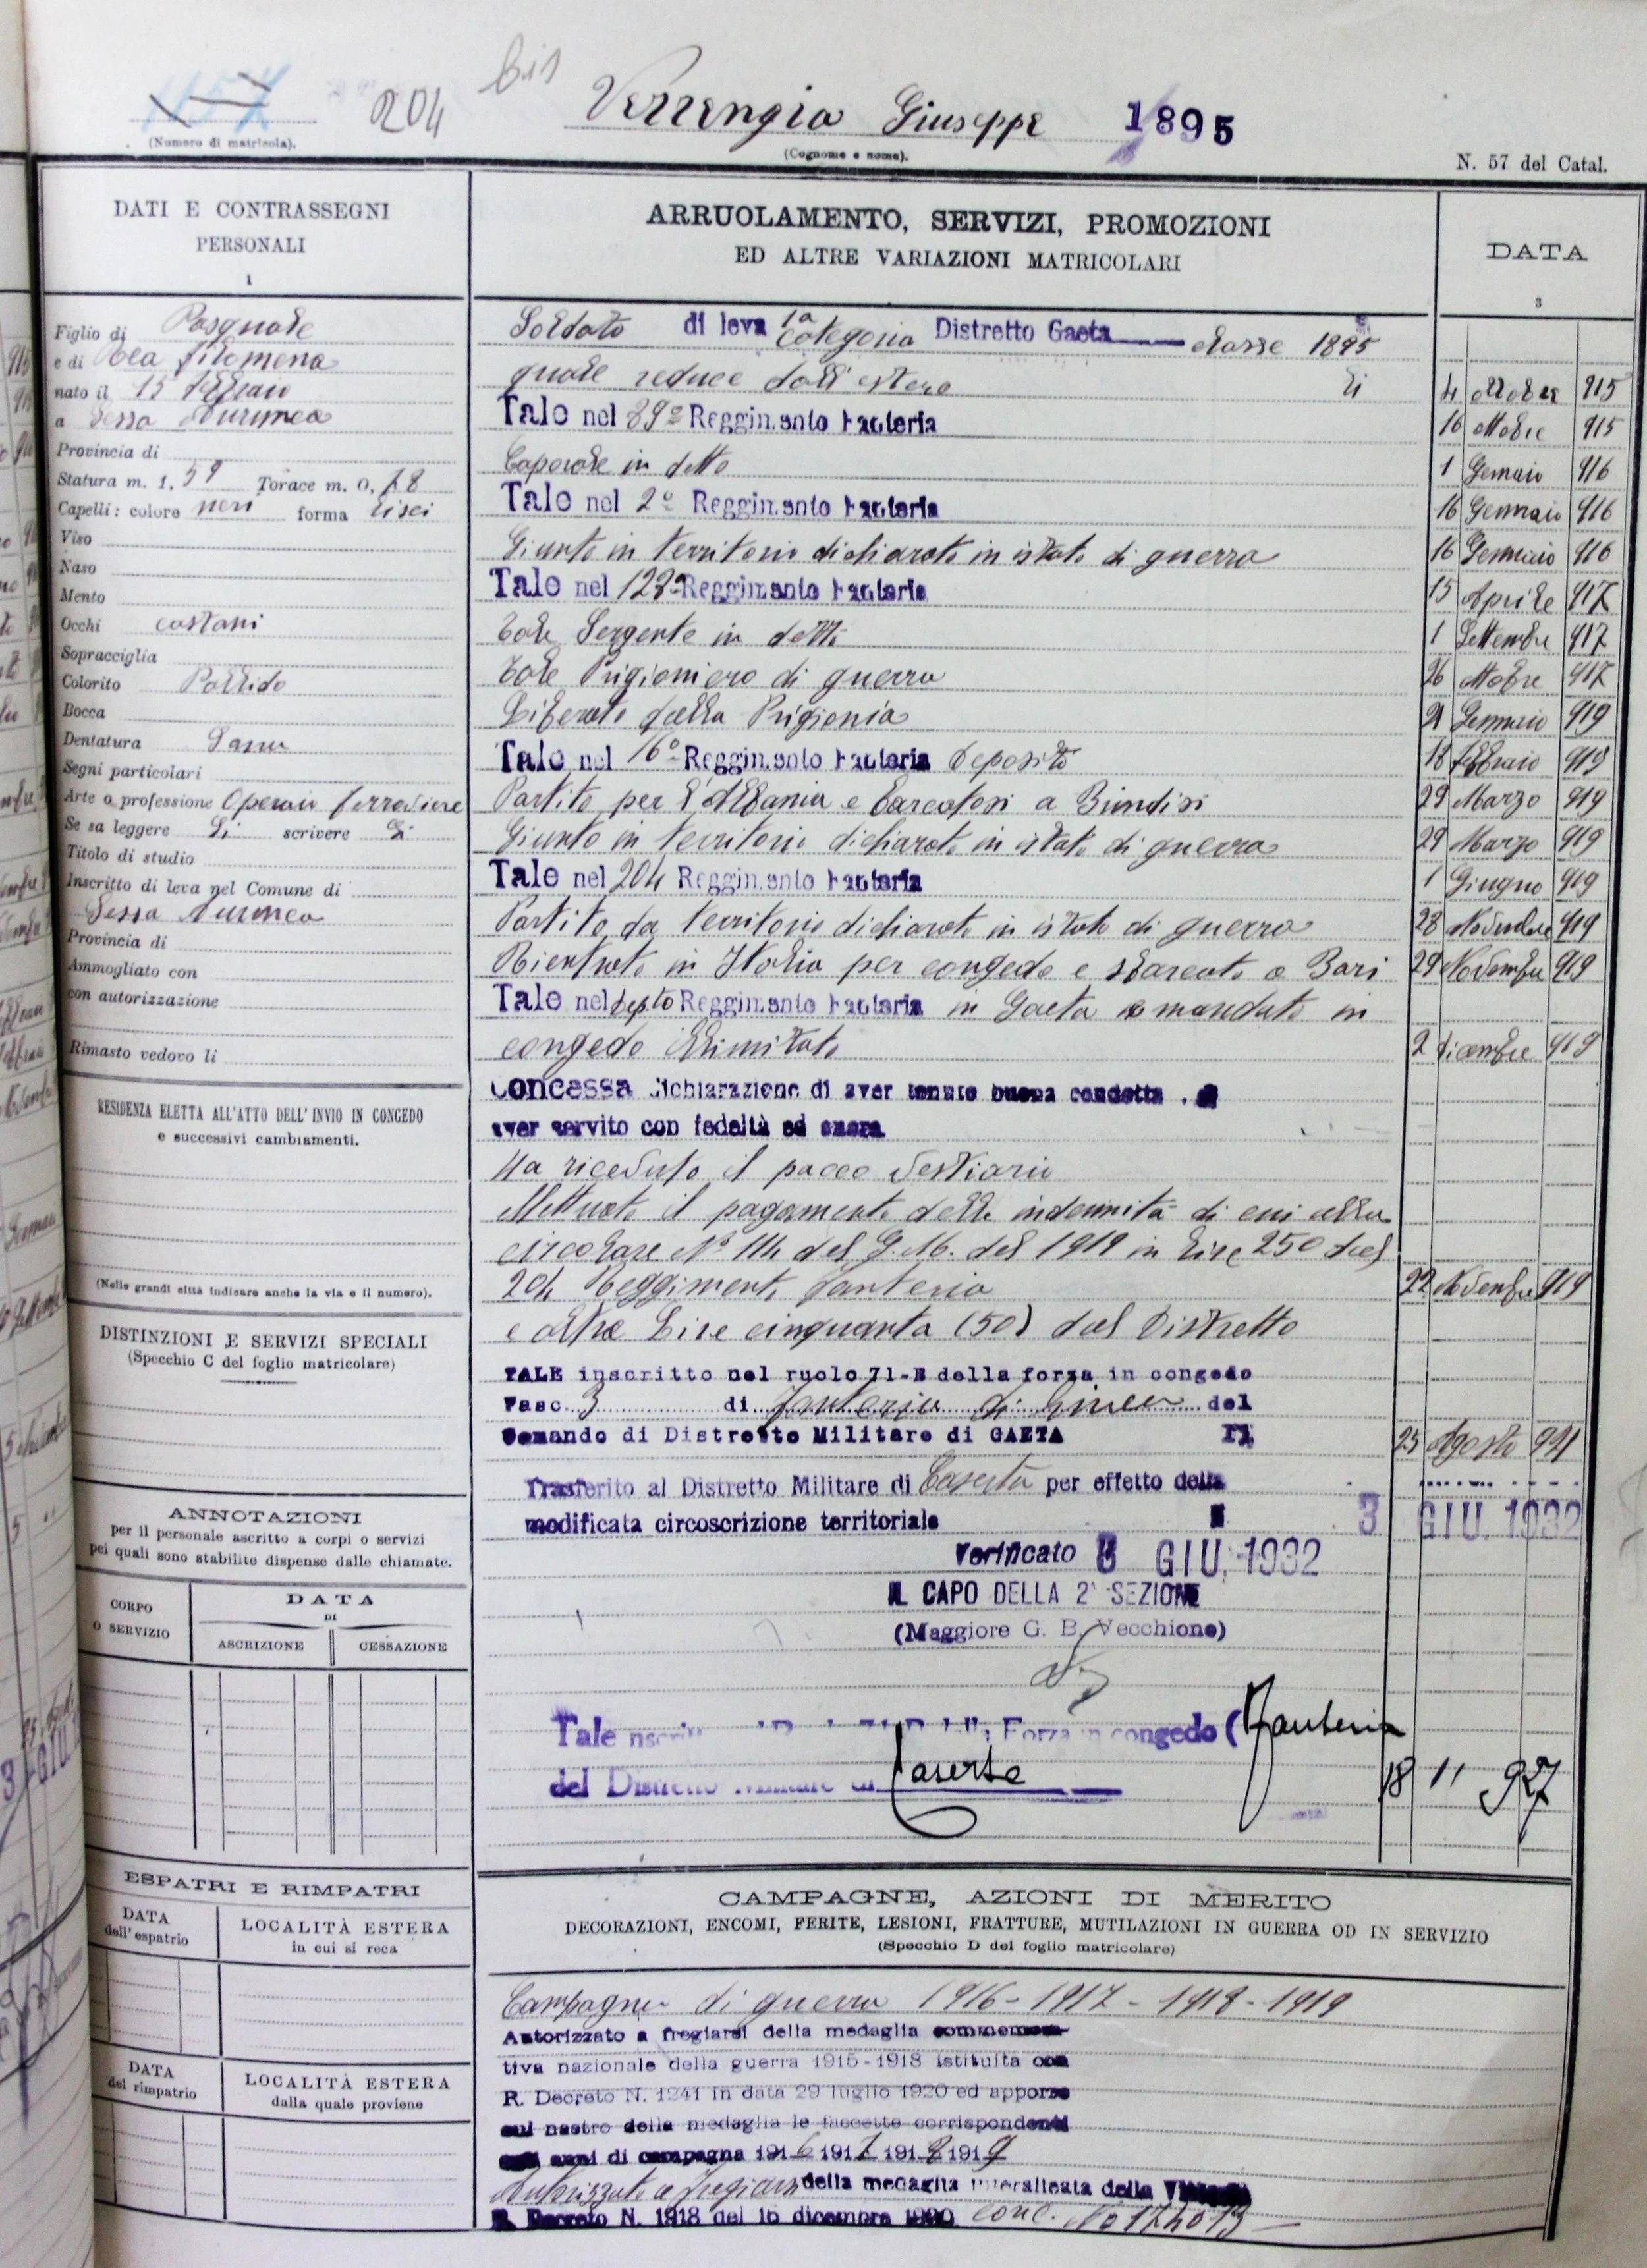 204 bis Verrengia Giuseppe 1895
(Numero di matricola).
(Cognome e nome).
N. 57 del Catal.
DATI E CONTRASSEGNI
PERSONALI
1
Figlio di Pasquale
e di Filomena
nato il 15
a Sessa Aurunca
Provincia di
Statura m. 1, 59 Torace m. 0,
Capelli: colore neri forma lisci
Viso
Naso
Mento
Occhi castani
Sopracciglia
Colorito Pallido
Bocca
Dentatura Sana
Segni particolari
Arte o professione Operaio ferroviere
Se sa leggere Si scrivere Si
Titolo di studio
Inscritto di leva nel Comune di
Sessa Aurunca
Provincia di
Ammogliato con
con autorizzazione
Rimasto vedovo li
RESIDENZA ELETTA ALL'ATTO DELL'INVIO IN CONGEDO
e successivi cambiamenti.
(Nelle grandi città indicare anche la via e il numero).
DISTINZIONI E SERVIZI SPECIALI
(Specchio C del foglio matricolare)
ANNOTAZIONI
per il personale ascritto a corpi o servizi
pei quali sono stabilite dispense dalle chiamate.
CORPO
O SERVIZIO
DATA
DI
ASCRIZIONE CESSAZIONE
ESPATRI E RIMPATRI
DATA
dell'espatrio
LOCALITÀ ESTERA
in cui si reca
DATA
del rimpatrio
LOCALITÀ ESTERA
dalla quale proviene
ARRUOLAMENTO, SERVIZI, PROMOZIONI
ED ALTRE VARIAZIONI MATRICOLARI
DATA
3
Soldato di leva 1a categoria Distretto Gaeta classe 1895
quale reduce dall'estero li 4 ottobre 915
Tale nel 89º Reggimento Fanteria 16 ottobre 915
Caporale in detto 1 Gennaio 916
Tale nel 2º Reggimento Fanteria 16 Gennaio 916
Giunto in territorio dichiarato in istato di guerra 16 Gennaio 916
Tale nel 128º Reggimento Fanteria 15 Aprile 917
Tale Sergente in detto 1 Settembre 917
Tale Prigioniero di guerra 26 ottobre 917
Liberato dalla Prigionia Gennaio 919
Tale nel 16º Reggimento Fanteria Deposito 18 febbraio 919
Partito per l'Albania e Barcatosi a Brindisi 29 Marzo 919
Giunto in territorio dichiarato in istato di guerra 29 Marzo 919
Tale nel 204 Reggimento Fanteria 1 Giugno 919
Partito da territorio dichiarato in istato di guerra 28 Novembre 919
Rientrato in Italia per congedo e sbarcato a Bari 29 Novembre 919
Tale nel Depto Reggimento Fanteria in Gaeta e mandato in
congedo illimitato 2 dicembre 919
Concessa dichiarazione di aver tenuto buona condotta e
aver servito con fedeltà ed onore
Ha ricevuto il pacco vestiario
Effettuato il pagamento della indennità di cui alla
circolare Nº 114 del G. M. del 1919 in Lire 250 dal
204 Reggimento fanteria 22 Novembre 919
e altre Lire cinquanta (50) dal Distretto
TALE inscritto nel ruolo 71-B della forza in congedo
Fasc. 3 di fanteria di linea del
Comando di Distretto Militare di GAETA li 25 Agosto 921
Trasferito al Distretto Militare di Caserta per effetto della
modificata circoscrizione territoriale li 3 GIU. 1932
Verificato 3 GIU. 1932
IL CAPO DELLA 2ª SEZIONE
(Maggiore G. B. Vecchione)
Tale Forza in congedo (Fanteria
del Distretto Militare di Caserta 18 11 927
CAMPAGNE, AZIONI DI MERITO
DECORAZIONI, ENCOMI, FERITE, LESIONI, FRATTURE, MUTILAZIONI IN GUERRA OD IN SERVIZIO
(Specchio D del foglio matricolare)
Campagne di guerra 1916 - 1917 - 1918 - 1919
Autorizzato a fregiarsi della medaglia commemora-
tiva nazionale della guerra 1915-1918 istituita con
R. Decreto N. 1241 in data 29 luglio 1920 ed apporre
sul nastro della medaglia le fascette corrispondenti
agli anni di campagna 1916 1917 1918 1919
Autorizzato a fregiarsi della medaglia interalleata della Vittoria
R. Decreto N. 1918 del 16 dicembre 1920 conc.